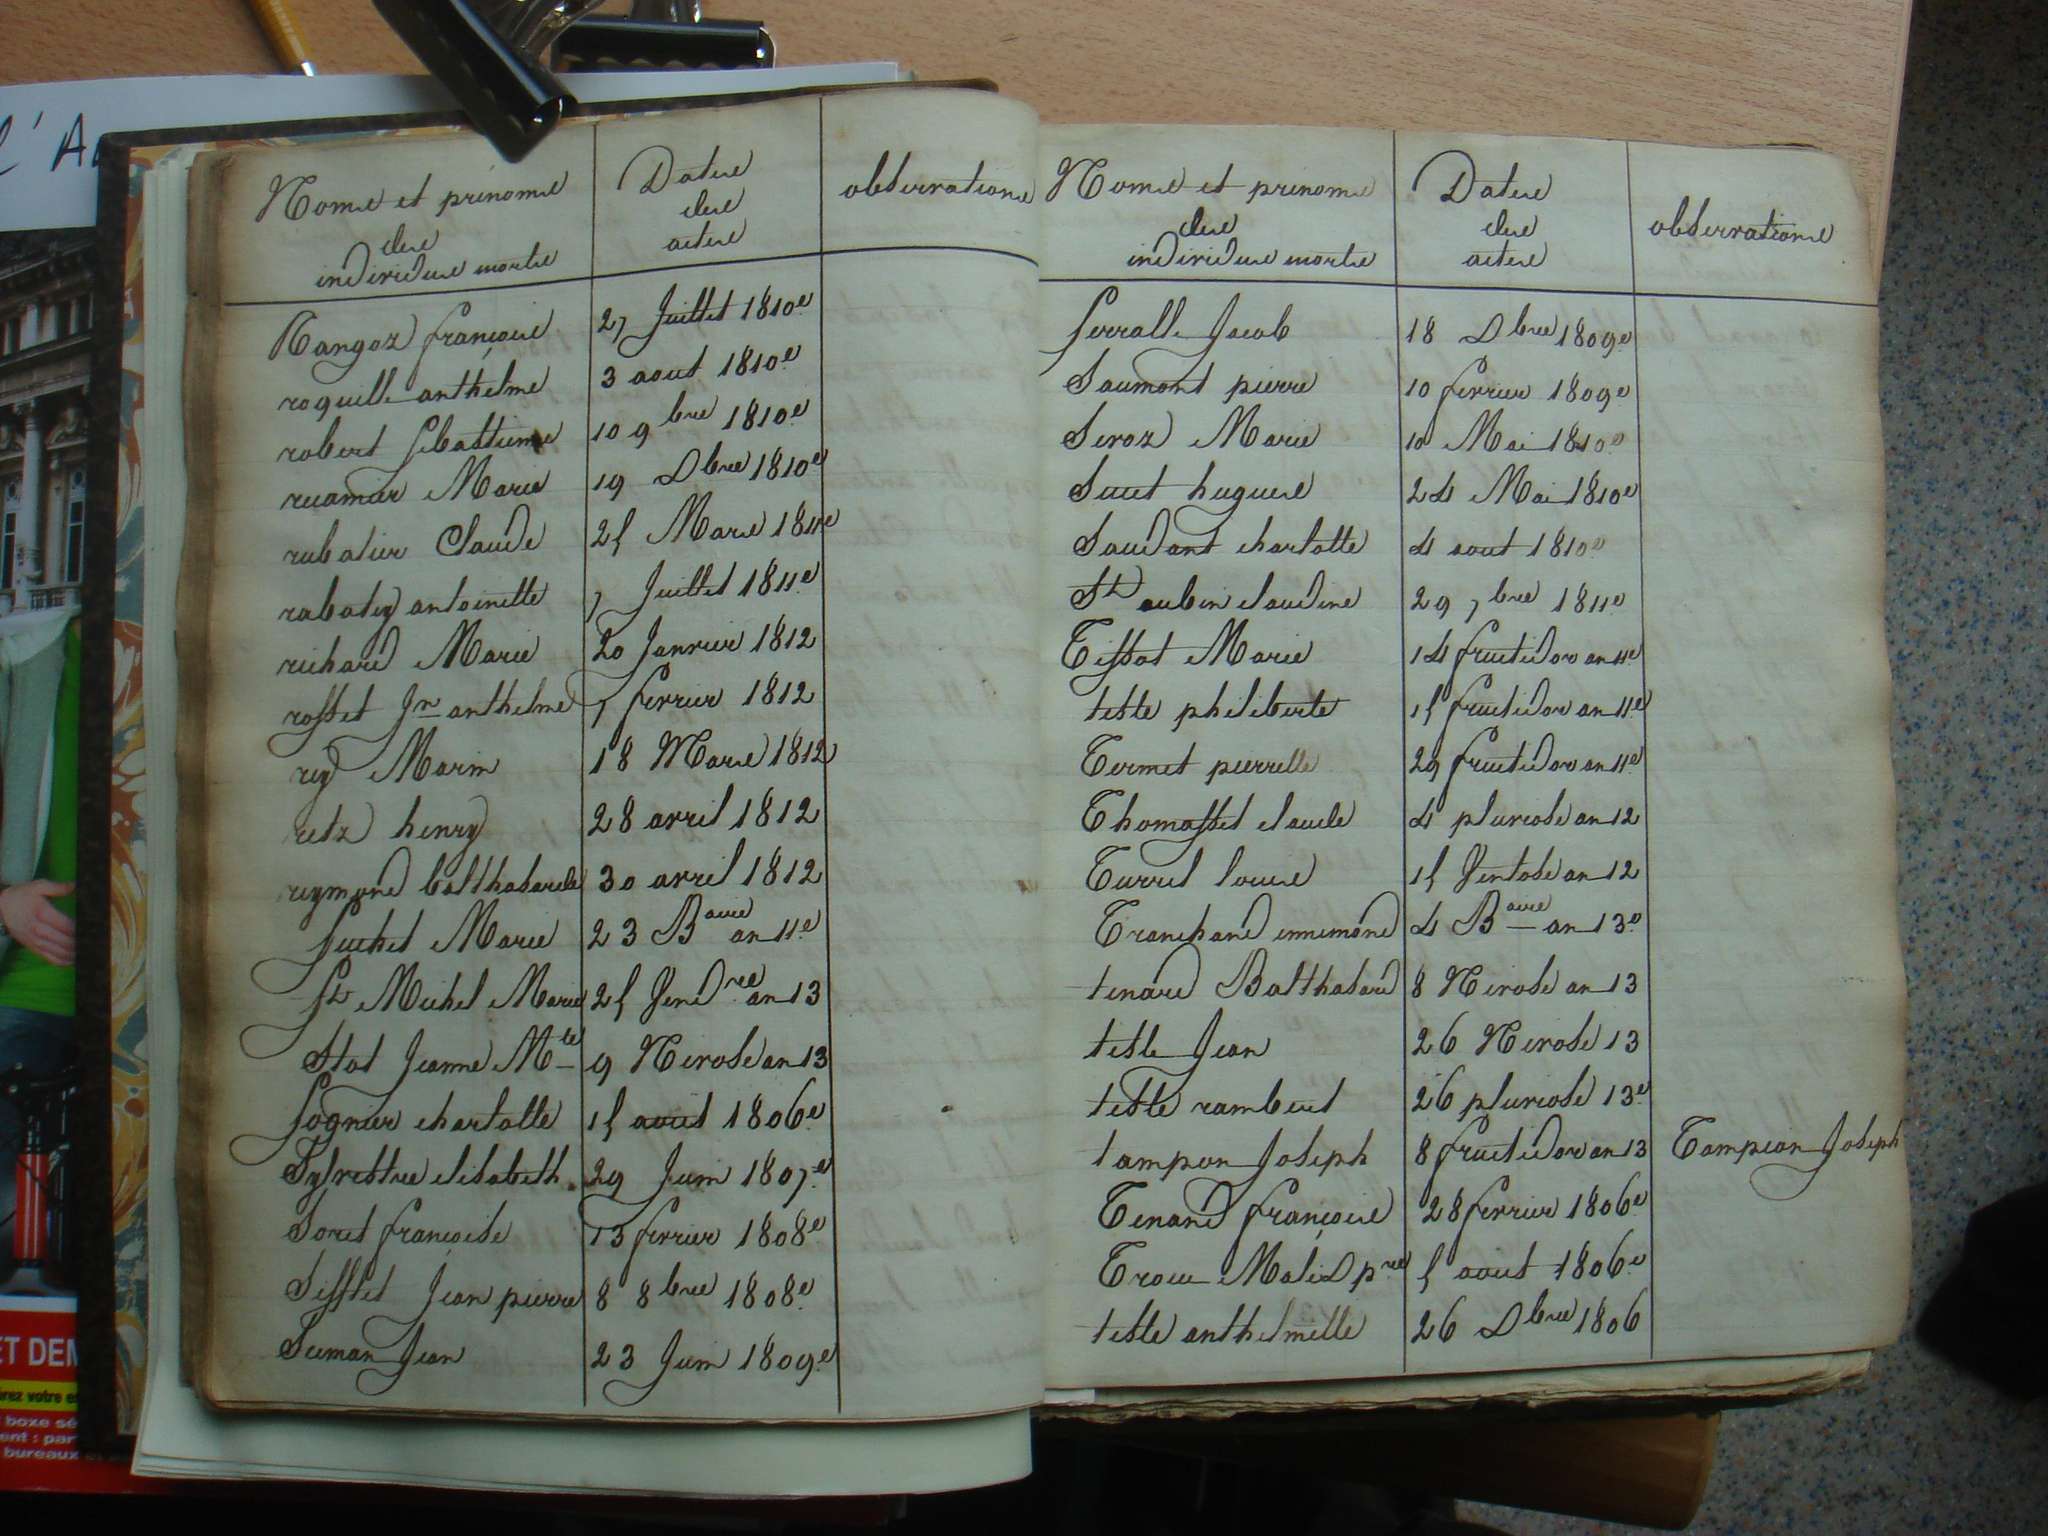 l'A
ET DEM
rez votre e
boxe sé
ent : par
bureaux e
Noms et prénoms
des
individus morts
Dates
des
actes
observations
Rangoz françois
27 Juillet 1810.e
roquille anthelme
3 aout 1810.e
robert Sébastienne
10 9bre 1810.e
ruamier Marie
19 Dbre 1810.e
rubatier Claude
25 Mars 1811e
rabatey antoinette
7 Juillet 1811.e
richard Marie
20 Janvier 1812
rosset Jn anthelme
7 fevrier 1812
rey Marin
18 Mars 1812
retz henry
28 avril 1812
reymond balthasarde
30 avril 1812
Suchet Marie
23 Baire an 11.e
St Michel Marie
25 Vendre an 13
Stat Jeanne Mte
9 Nivose an 13
Sognier charlotte
15 aout 1806.e
Sylvestre elisabeth
29 Juin 1807.e
Soret françoise
13 fevrier 1808.e
Sifflet Jean pierre
8 8bre 1808.e
Suman Jean
23 Juin 1809.e
Noms et prénoms
des
individus morts
Dates
des
actes
observations
Serralle Jacob
18 Dbre 1809.e
Saumont pierre
10 fevrier 1809.e
Seroz Marie
10 Mai 1810.e
Suet hugues
24 Mai 1810e
Saudant charlotte
4 aout 1810.e
St aubin claudine
29 7bre 1811e
Tissot Marie
14 fructidor an 11e
teste philiberte
15 fructidor an 11.e
Termet pierrette
29 fructidor an 11.e
Thomasset claude
4 pluviose an 12
Turrel louise
15 Ventose an 12
Tranchand ennemond
4 Baire an 13.e
tenard Balthasard
8 Nivose an 13
teste Jean
26 Nivose 13
teste rambert
26 pluviose 13.e
tampon Joseph
8 fructidor an 13
Tampion Joseph
Tenand françois
28 fevrier 1806.e
5 aout 1806.e
teste anthelmette
26 Dbre 1806